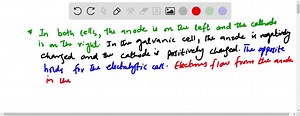 * In both cells, the anode is on the left and the cathode
is on the right. In the galvanic cell, the anode is negatively
charged and the cathode is positively charged. The opposite
holds for the electrolytic cell. Electrons flow from the anode
in the